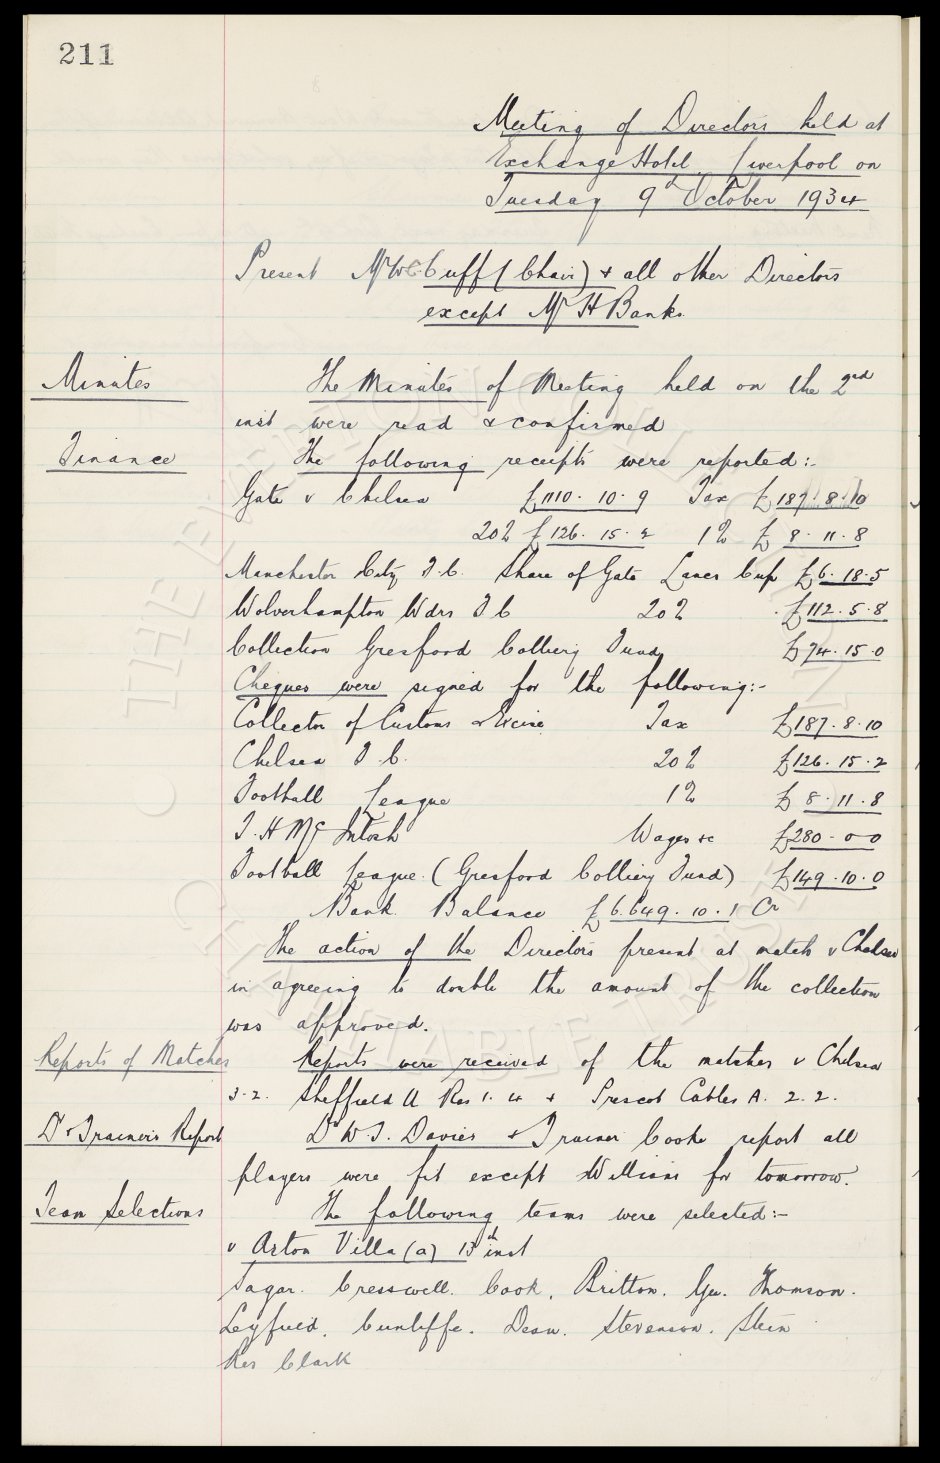 211
Meeting of Directors held at
Exchange Hotel, Liverpool on
Tuesday 9th October 1934
Present Mr W C Cuff (Chair) & all other Directors
except Mr H Banks.
Minutes The Minutes of Meeting held on the 2nd
inst were read & confirmed
Finance The following receipts were reported:-
Gate v Chelsea £1110. 10. 9 Tax £187. 8. 10
20% £126. 15. 2 1% £8. 11. 8
Manchester City F.C. Share of Gate Lancs Cup £6. 18. 5
Wolverhampton Wdrs F C 20% £112. 5. 8
Collection Gresford Colliery Fund £74. 15. 0
Cheques were signed for the following:-
Collector of Customs & Excise Tax £187. 8. 10
Chelsea F.C. 20% £126. 15. 2
Football League 1% £8. 11. 8
T. H McIntosh Wages &c £280. 0 0
Football League. (Gresford Colliery Fund) £149. 10. 0
Bank Balance £6.649. 10. 1 Cr
The action of the Directors present at match v Chelsea
in agreeing to double the amount of the collection
was approved.
Reports of Matches Reports were received of the matches v Chelsea
3-2. Sheffield U Res 1. 4 & Prescot Cables A. 2. 2.
Dr & Trainers Report Dr W. J. Davies & Trainer Cooke report all
players were fit except Williams for tomorrow.
Team Selections The following teams were selected:-
v Aston Villa (a) 13th inst
Sagar. Cresswell. Cook. Britton. Gee. Thomson.
Leyfield. Cunliffe. Dean. Stevenson. Stein
Res Clark
THE EVERTON COLLECTION
CHARITABLE TRUST